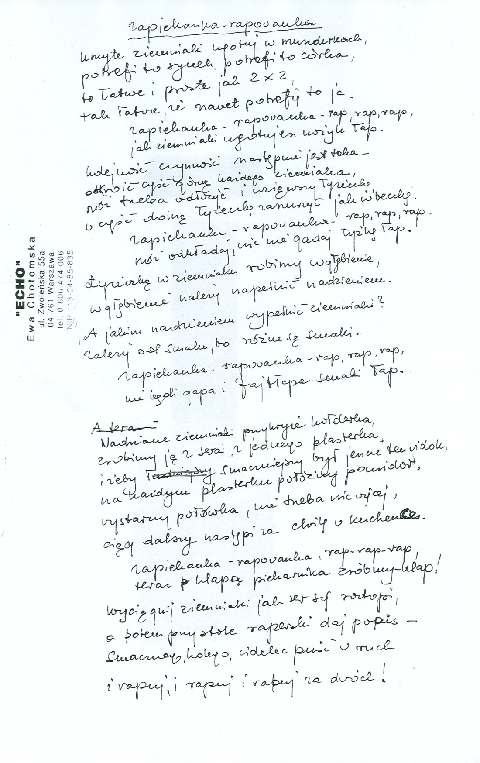 zapiekanka-rapowanka
Umyte ziemniaki ugotuj w mundurkach,
potrafi to synek, potrafi to córka,
to łatwe i proste jak 2 x 2,
tak łatwe, że nawet potrafię to ja.
zapiekanka - rapowanka - rap, rap, rap,
jak ziemniaki ugotujesz
Kolejność czynności następna jest taka -
odkroić część górną każdego ziemniaka,
nóż trzeba odłożyć i wziąwszy łyżeczkę
w część dolną łyżeczkę zanurzyć jak w beczkę.
zapiekanka - rapowanka - rap, rap, rap.
nóż odkładaj, nic nie gadaj łyżkę łap!
Łyżeczką w ziemniaku robimy wgłębienie,
wgłębienie należy napełnić nadzieniem.
A jakim nadzieniem wypełnić ziemniaki?
zależy od smaku, bo różne są smaki.
zapiekanka - rapowanka - rap, rap, rap,
nie bądź gapa i
A teraz
Nadziane ziemniaki przykryć kołderką,
zrobimy ją z sera z jednego plasterka,
i żeby smaczniejszy był jeszcze ten widok,
na każdym plasterku położymy pomidor,
wystarczy połówka, nie trzeba nic więcej,
ciąg dalszy nastąpi za chwilę w kuchence.
zapiekanka - rapowanka, rap-rap-rap,
teraz klapą piekarnika zróbmy klap!
Wyciągnij ziemniaki jak ser się roztopi,
a potem przy stole raperski daj popis -
Smacznego, kolego, widelec puść w ruch
i rapuj, i rapuj i rapuj za dwóch!
"ECHO"
Ewa Chotomska
ul. Zwoleńska 55a
04-761 Warszawa